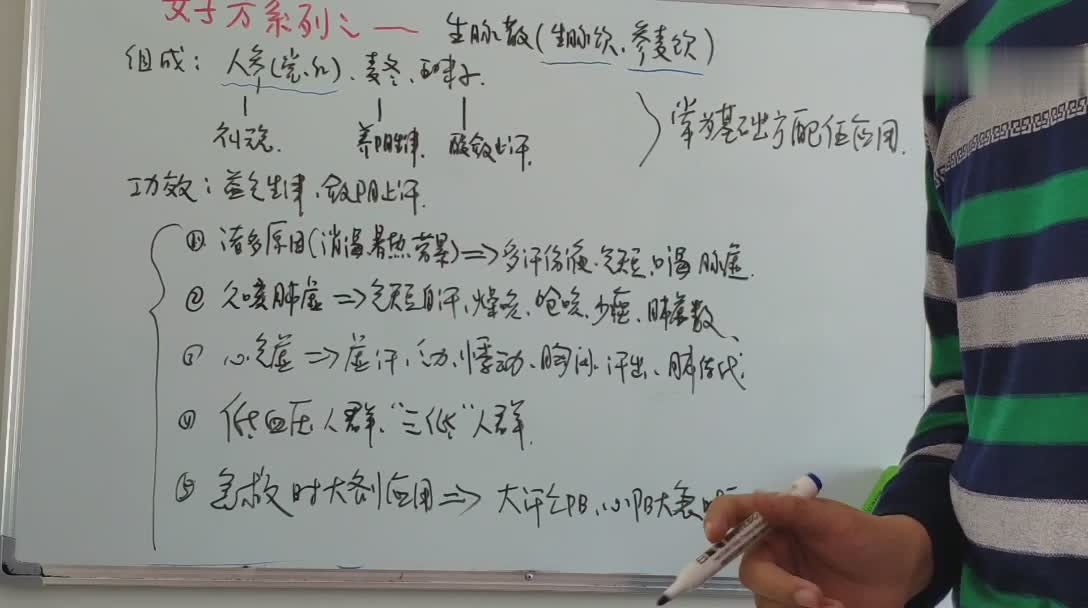 好方系列之一 生脉散(生脉饮、参麦饮)
组成：人参(党、红)、麦冬、五味子.
补元气. 养阴生津. 酸敛止汗.
常为基础方配伍应用.
功效：益气生津、敛阴止汗.
① 诸多原因(消渴、暑热、劳累)⇒多汗伤液、气短、口渴、脉虚.
② 久咳肺虚⇒气短自汗、燥咳、呛咳、少痰、脉虚数、
③ 心气虚⇒虚汗、心动悸动、胸闷、汗出、脉结代;
④ 低血压人群、“三低”人群.
⑤ 急救时大剂应用⇒大汗亡阳、心阳大衰